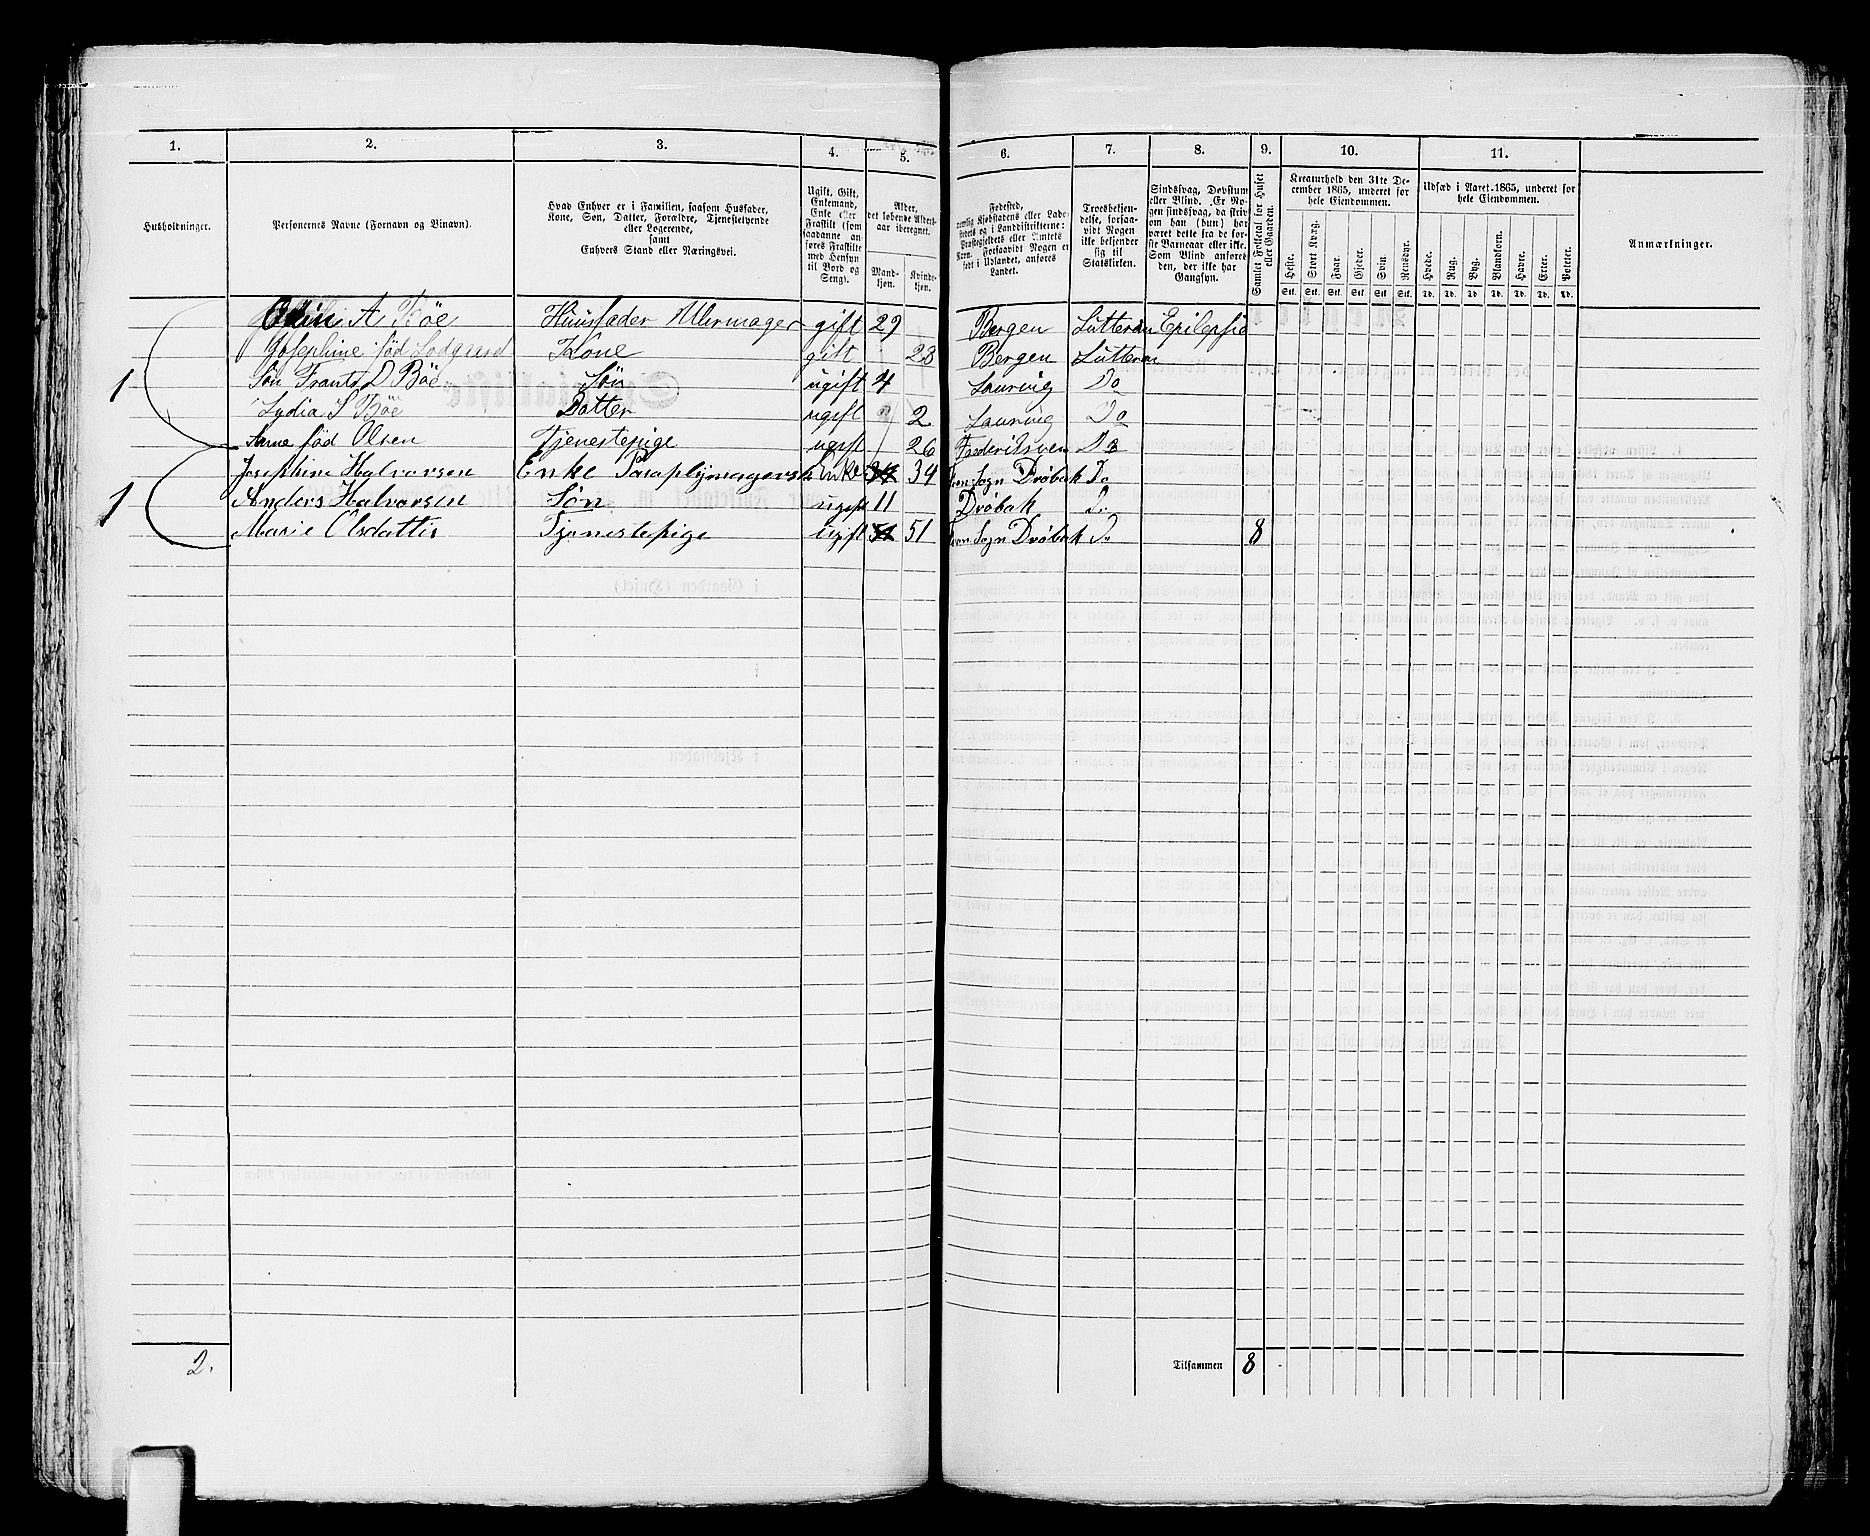 1. 2. 3. 4. 5. 6. 7. 8. 9. 10. 11.
Husholdninger.
Personernes Navne (Fornavn og Binavn).
Hvad Enhver er i Familien, saasom Husfader,
Kone, Søn, Datter, Forældre, Tjenestetyende
eller Logerende,
samt
Enhvers Stand eller Næringsvei.
Ugift, Gift,
Enkemand,
Enke eller
Fraskilt (som
saadanne an-
føres Fraskilte
med Hensyn
til Bord og
Seng).
Alder,
det løbende Alders-
aar iberegnet.
Mand-
kjøn.
Kvinde-
kjøn.
Fødested,
nemlig Kjøbstadens eller Lade-
stedets og i Landdistrikterne:
Præstegjeldets eller Amtets
Navn. Forsaavidt Nogen er
født i Udlandet, anføres
Landet.
Troesbekjen-
delse, forsaa-
vidt Nogen
ikke bekjender
sig til
Statskirken.
Sindssvag, Døvstum
eller Blind. Er No-
gen sindssvag, da skriv
om han (hun) har
været dette fra de før-
ste Barneaar eller ikke.
Som Blind anføres
den, der ikke har
Gangsyn.
Samlet Folketal for Huset
eller Gaarden.
Kreaturhold den 31te De-
cember 1865, underet for
hele Eiendommen.
Heste. Stort Kvæg. Faar. Gjeder. Svin. Rensdyr.
Stk. Stk. Stk. Stk. Stk. Stk.
Udsæd i Aaret 1865, underet for
hele Eiendommen.
Hvede. Rug. Byg. Blandkorn. Havre. Erter. Poteter.
Td. Td. Td. Td. Td. Td. Td.
Anmærkninger.
A Böe Huusfader Uhrmager gift 29 Bergen Lutteran Epilepsie
Josephine fød Kone gift 28 Bergen Lutteran
1 Søn Frants D Böe Søn ugift 4 Laurvig Do
Lydia S Böe Datter ugift 2 Laurvig Do
fød Olsen Tjenestepige ugift 26 Frederiksvern Do
Josephine Halvorsen Enke Paraplymagerske Enke 34 Sogn Drøbak Do
1 Anders Halvorsen Søn ugift 11 Drøbak Do
Marie Olsdatter Tjenestepige ugift 51 Sogn Drøbak Do 8
2. Tilsammen 8